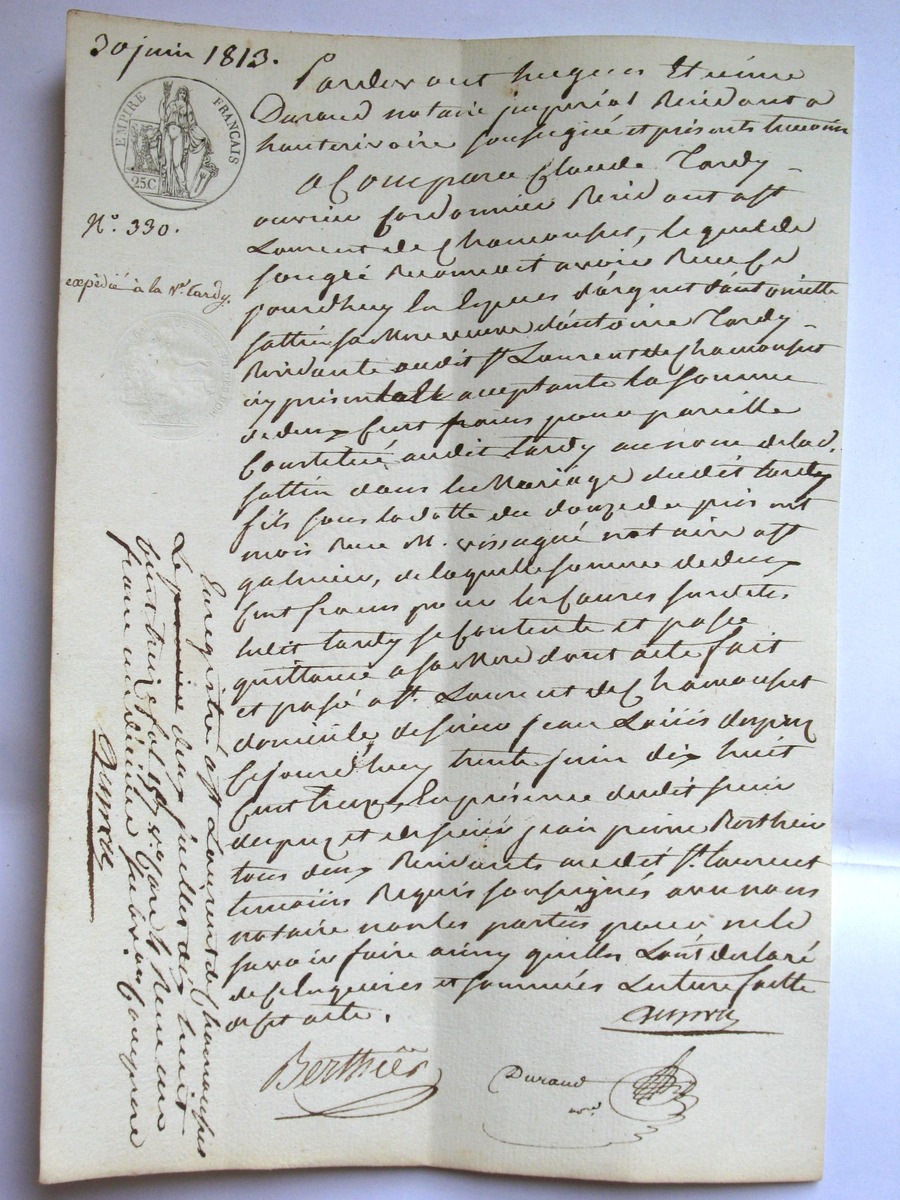 30 juin 1813.
EMPIRE FRANÇAIS
25C
N.° 330.
expédié à la V.e tardy.
Pardevant hugues Etienne
Durand notaire imperial Residant a
hauterivoire soussigné et présents temoins
a Comparu Claude Tardy
ouvrier Cordonnier Residant a st
Laurent de Chamousset, lequel de
son gré Reconnoit avoir Recu Ce
jourdhuy en Especes d'argent d'antoinette
fattin sa Mere veuve d'antoine Tardy
Residante audit st. Laurent de Chamousset
icy presente et acceptante la somme
de deux Cent francs pour pareille
Constitué audit tardy au nom de lad.
fattin dans le Mariage dudit tardy
fils sous la datte du douze du présent
mois Recu M. notaire a st
galmier, de laquelle somme de deux
Cent francs pour les Causes susdites
ledit tardy se Contente et passe
quittance a sa Mere dont acte fait
et passé a st. Laurent de Chamousset
domicile de sieur jean Louis dupuy
Cejourdhuy trente juin dix huit
Cent treize, En présence dudit sieur
dupuy et de sieur jean pierre Berthier
tous deux Residants audit st. Laurent
temoins Requis soussignés avec nous
notaire non les parties pour ne le
savoir faire ainsy quelles L'ont declaré
de Ce Enquises et sommées Lecture faitte
dudit acte.
Berthier
Durand
not.re
Enregistré a st Laurent de Chamousset
Le deux juillet dix huit
Cent treize fol. 159 v.° Case Recu un
franc